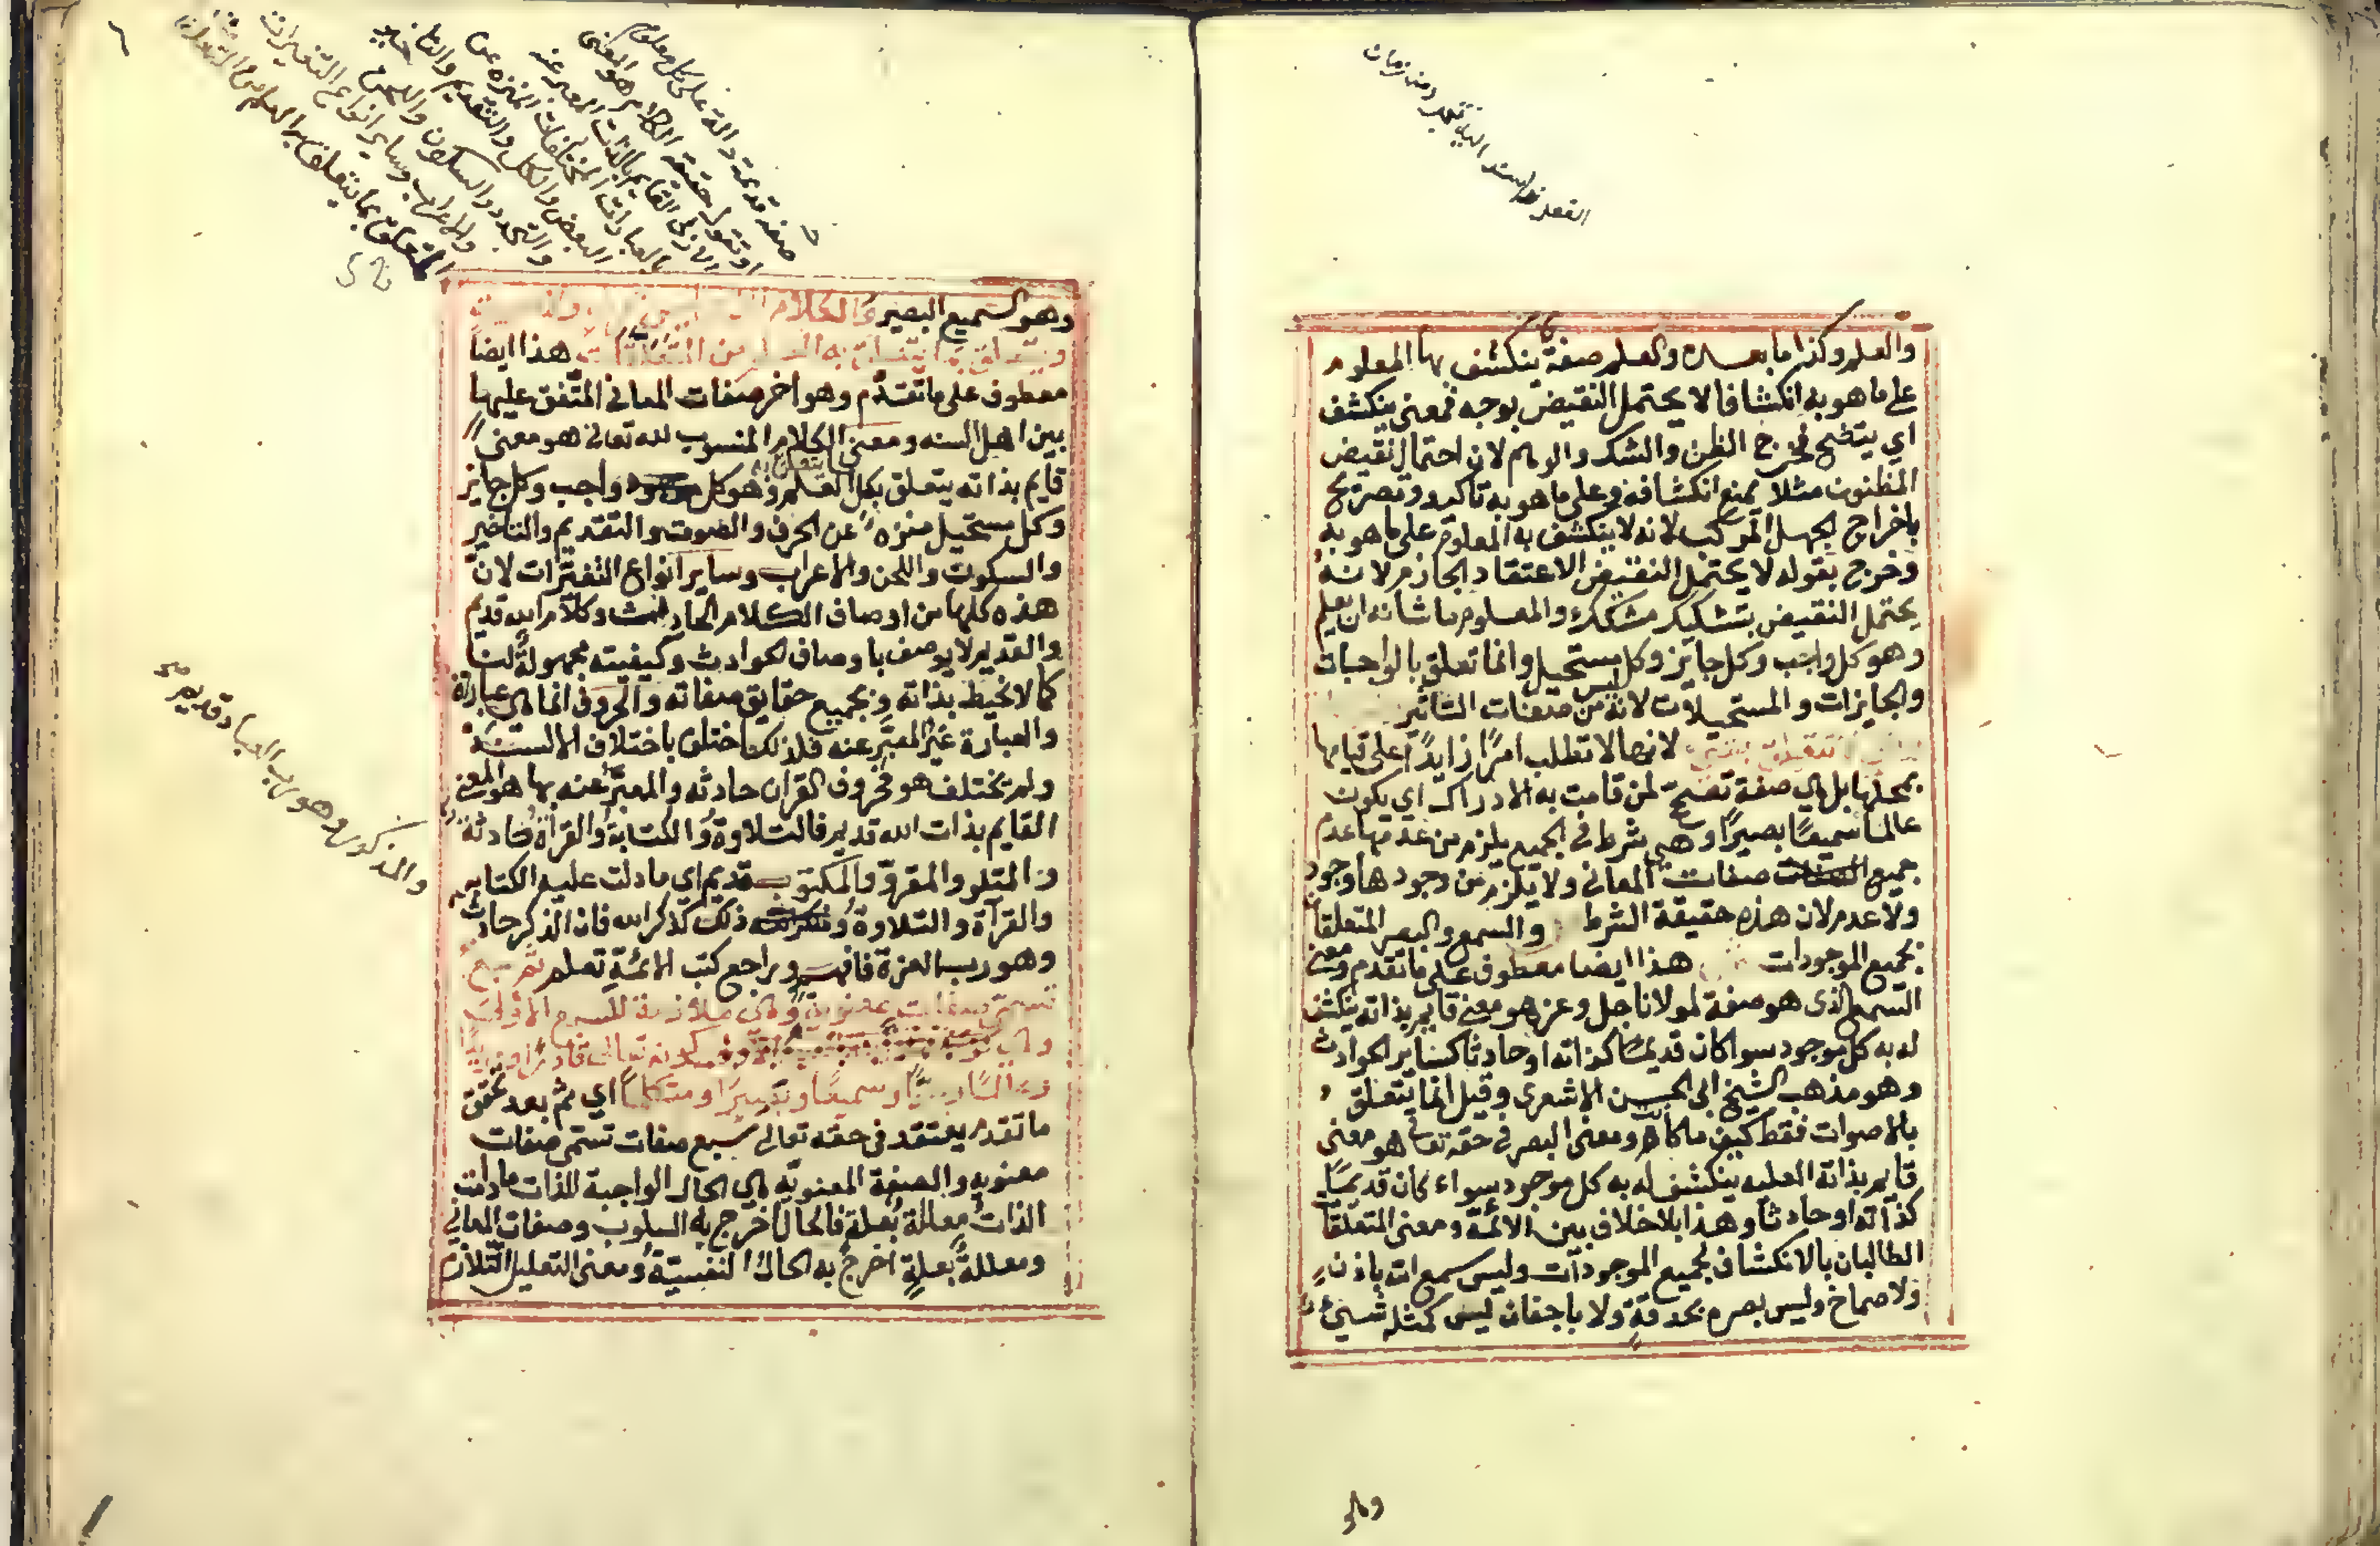 والعلم وكذا ما بعده والعلم صفة ينكشف بها المعلوم
على ما هو به انكشافا لا يحتمل النقيض بوجه فمعنى ينكشف
اي يتضح فخرج الظن والشك والوهم لان احتمال نقيض
المظنون مثلا يمنع انكشافه وعلى ما هو به تاكيد وتصريح
باخراج الجهل المركب لانه لا ينكشف به المعلوم على ما هو به
وخرج بقوله لا يحتمل النقيض الاعتقاد الجازم لانه
يحتمل النقيض بتشكيك مشكك والمعلوم ما شانه ان يعلم
وهو كل واجب وكل جايز وكل مستحيل وانما تعلق بالواجبات
والجايزات والمستحيلات لانه ليس من صفات التاثير
لانها لا تطلب امرًا زايدًا على قيامها
بمحلها بل هي صفة تصحح لمن قامت به الادراك اي يكون
عالما سميعًا بصيرًا وهي شرط في الجميع يلزم من عدمها عدم
جميع صفات المعاني ولا يلزم من وجودها وجود
ولا عدم لان هذه حقيقة الشرط والسمع والبصر المتعلقان
بجميع الموجودات هذا ايضا معطوف على ما تقدم ومعنى
السمع الذى هو صفة لمولانا جل وعز هو معنى قايم بذاته ينكشف
له به كل موجود سوا كان قديمًا كذاته او حادثا كساير الحوادث
وهو مذهب الشيخ ابى الحسن الاشعري وقيل انما يتعلق
بالاصوات فقط كيف ما كانت ومعنى البصر في حقه تعالى هو معنى
قايم بذاته العليه ينكشف له به كل موجود سواء كان قديمًا
كذاته او حادثا وهذا بلا خلاف بين الائمة ومعنى المتعلقان
الطالبان بالانكشاف لجميع الموجودات وليس سمع الله باذن
ولا صماخ وليس بصره بحدقةٍ ولا باجفان ليس كمثله شيئ
وهو
صفة قديمة دالة على كل معلوم
او تقول حقيقة الكلام هو المعنى
الازلي القايم بالذات المعبر عنه
بالعبارات المختلفات المنزه عن
البعض والكل والتقديم والتاخير
والتجدد والسكون واللحن
والاعراب وساير انواع التغيرات
المتعلق بما يتعلق به العلم من المتعلقات
وهو السميع البصير والكلام
ويتعلق بما يتعلق به العلم من المتعلقات هذا ايضا
معطوف على ما تقدم وهو اخر صفات المعاني المتفق عليها
بين اهل السنه ومعنى الكلام المنسوب لله تعالى هو معنى
قايم بذاته يتعلق بكل ما يتعلق به العلم وهو كل واجب وكل جايز
وكل مستحيل منزه عن الحرف والصوت والتقديم والتاخير
والسكوت واللحن والاعراب وساير انواع التغيّرات لان
هذه كلها من اوصاف الكلام الحادث وكلام الله قديم
والقديم لا يوصف باوصاف الحوادث وكيفيته مجهولة لنا
كما لا نحيط بذاته وبجميع حقايق صفاته والحروف انما هي عبارة
والعبارة غير المعبّر عنه فلذلك اختلف باختلاف الالسنة
ولم يختلف هو فحروف القران حادثه والمعبّر عنه بها هو المعنى
القايم بذات الله قديم فالتلاوة والكتابة والقراة حادثة
والمتلو والمقرو والمكتوب قديم اي ما دلت عليه الكتابة
والقرآة والتلاوة ذلك كذكر الله فان الذكر حادث
وهو رب العزة فافهم وراجع كتب الائمة تعلم ثم سبع
تسمى صفات معنوية وهي ملازمة للسبع الاولى
وهي كونه تعالى قادرًا ومريدًا
وعالمًا وحيًّا وسميعًا وبصيرًا ومتكلمًا اي ثم بعد تحقق
ما تقدم يعتقد في حقه تعالى سبع صفات تسمى صفات
معنويه والصفة المعنويّة هي الحال الواجبة للذات ما دامت
الذات معللة بعلة فالحال اخرج به السلوب وصفات المعاني
ومعللةٌ بعلةٍ اخرج به الحال النفسيّة ومعنى التعليل التلازم
والمذكور وهو رب العباد قديم